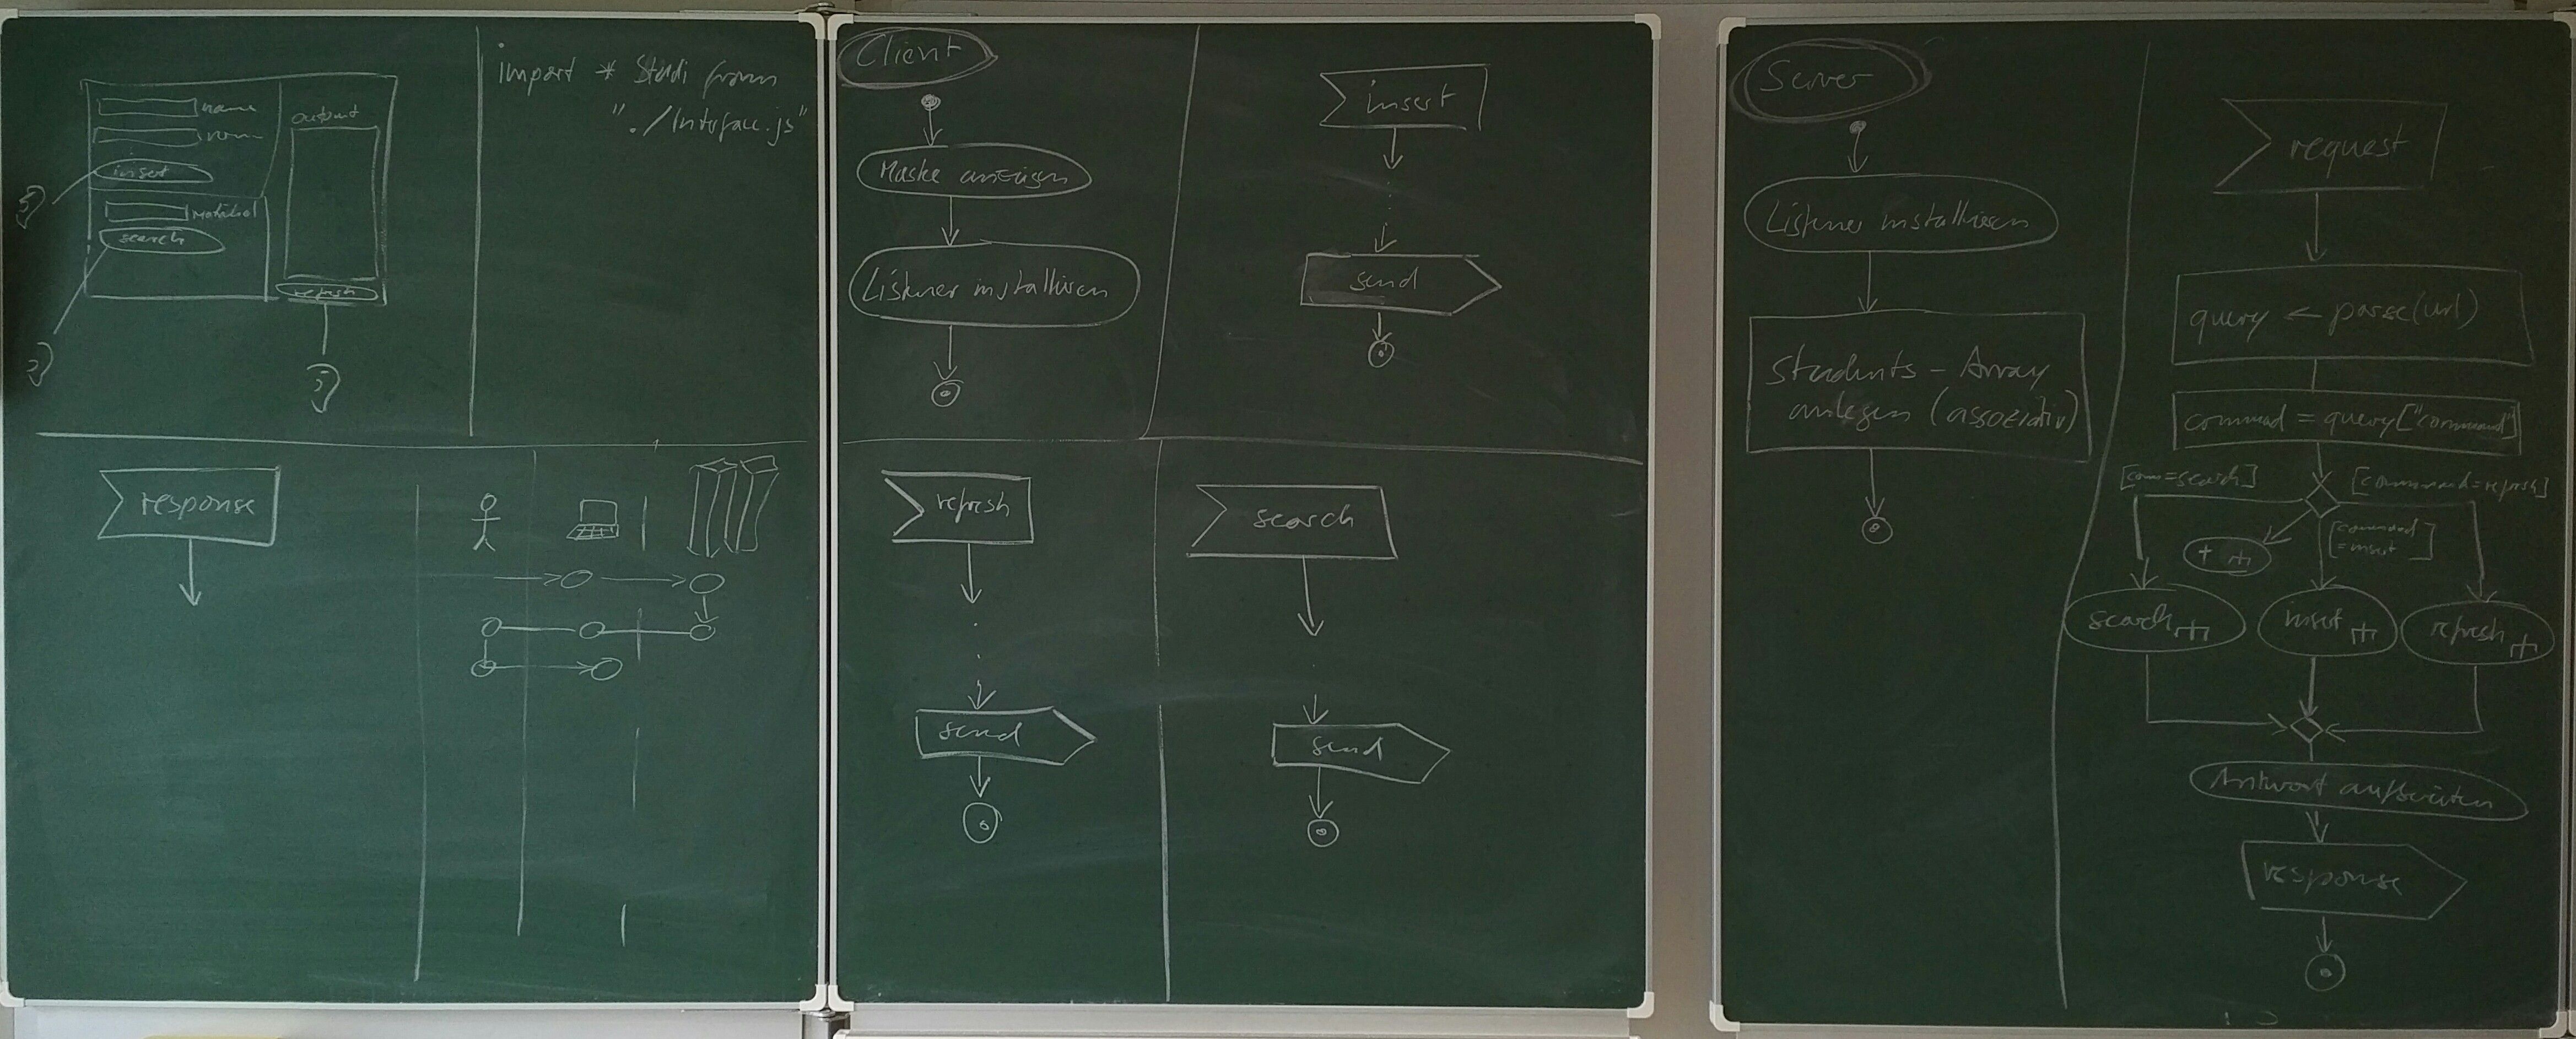 import * Studi from
"./Interface.js"
name
output
insert
search
refresh
response
Client
Maske anzeigen
Listener installieren
insert
send
refresh
send
search
send
Server
Listener installieren
Students - Array
anlegen (assoziativ)
request
query ← parse(url)
command = query["command"]
[com=search]
[command=refresh]
[command
=insert]
+
search
insert
refresh
Antwort aufbereiten
response